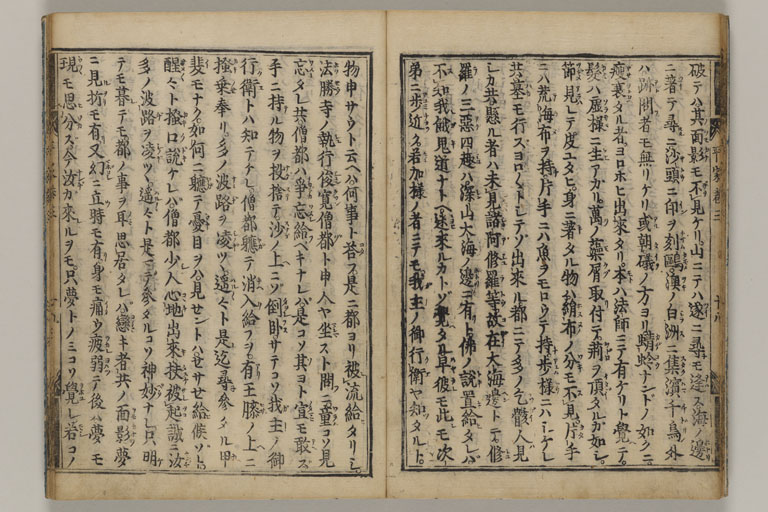 破テハ其面影モ不見ケリ山ニテハ遂ニ尋モ逢ス海ノ邊
ニ著テ尋ニ沙頭ニ印ヲ刻鷗澳ノ白洲ニ集濱千鳥外
ハ跡問者モ無リケリ或朝磯ノ方ヨリ蜻蛉ナンドノ如クニ
瘦衰タル者ヨロホヒ出來タリ本ハ法師ニテ有ケリト覺テ
髮ハ虛樣ニ生アカリ萬ノ藻屑取付テ荊ヲ頂タルカ如シ
節見レテ皮ユタヒ身ニ著タル物ハ絹布ノ分モ不見片手
ニハ荒海布ヲ持片手ニハ魚ヲモロウテ持步樣ニハシケレ
共墓モ行スヨロ〱トシテソ出來ル都ニテ多ノ乞丐人見
シカ共懸ル者ハ未見諸阿修羅等故在大海邊トテ修
羅ノ三惡四趣ハ深山大海ノ邊ニ有ト佛ノ說置給タレハ
不知我餓鬼道ナトヘ迷來ルカトソ覺タル早彼モ此モ次
第ニ步近ク若加樣ノ者ニテモ我主ノ御行衞ヤ知タルト
物申サウト云ヘハ何事ト答フ是ニ都ヨリ被流給タリシ
法勝寺ノ執行俊寬僧都ト申人ヤ坐スト問ニ童コソ見
忘タレ共僧都ハ爭忘給ヘキナレハ是コソ其ヨト宜モ敢ス
手ニ持ル物ヲ投捨テ沙ノ上ニソ倒臥サテコソ我主ノ御
行衞トハ知テケレ僧都軈テ消入給フヲ有王膝ノ上ニ
搔乘奉リ多ノ波路ヲ凌ツヽ遙々ト是迄尋參タル甲
斐モナク如何ニ軈テ憂目ヲハ見セントハセサセ給候ソト
醒々ト搔口說ケレハ僧都少人心地出來扶被起誠ニ汝
多ノ波路ヲ凌ツヽ遙々ト是マテ參タルコソ神妙ナレ只明
テモ暮テモ都ノ事ヲ耳思居タレハ戀キ者共ノ面影夢
ニ見折モ有又幻ニ立時モ有身モ痛ウ疲弱テ後ハ夢モ
現モ思分ス今汝カ來ルヲモ只夢トノミコソ覺レ若コノ